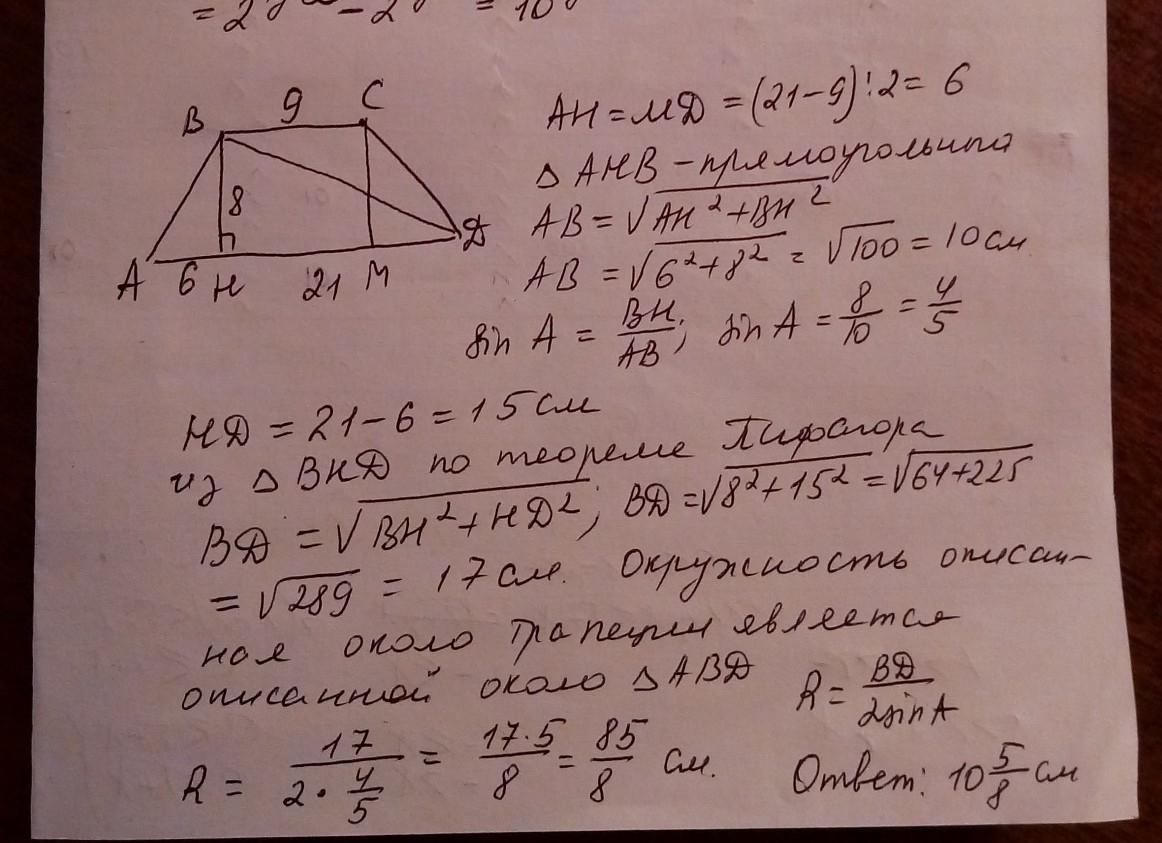 B 9 C
8
A 6 H 21 M D
AH = MD = (21-9):2 = 6
△ AHB - прямоугольный
AB = √AH² + BH²
AB = √6² + 8² = √100 = 10 см
sin A = BH/AB; sin A = 8/10 = 4/5
HD = 21 - 6 = 15 см
из △ BHD по теореме Пифагора
BD = √BH² + HD²; BD = √8² + 15² = √64 + 225
= √289 = 17 см. Окружность описан-
ная около трапеции является
описанной около △ ABD R = BD/2sinA
R = 17/2·4/5 = 17·5/8 = 85/8 см. Ответ: 10 5/8 см